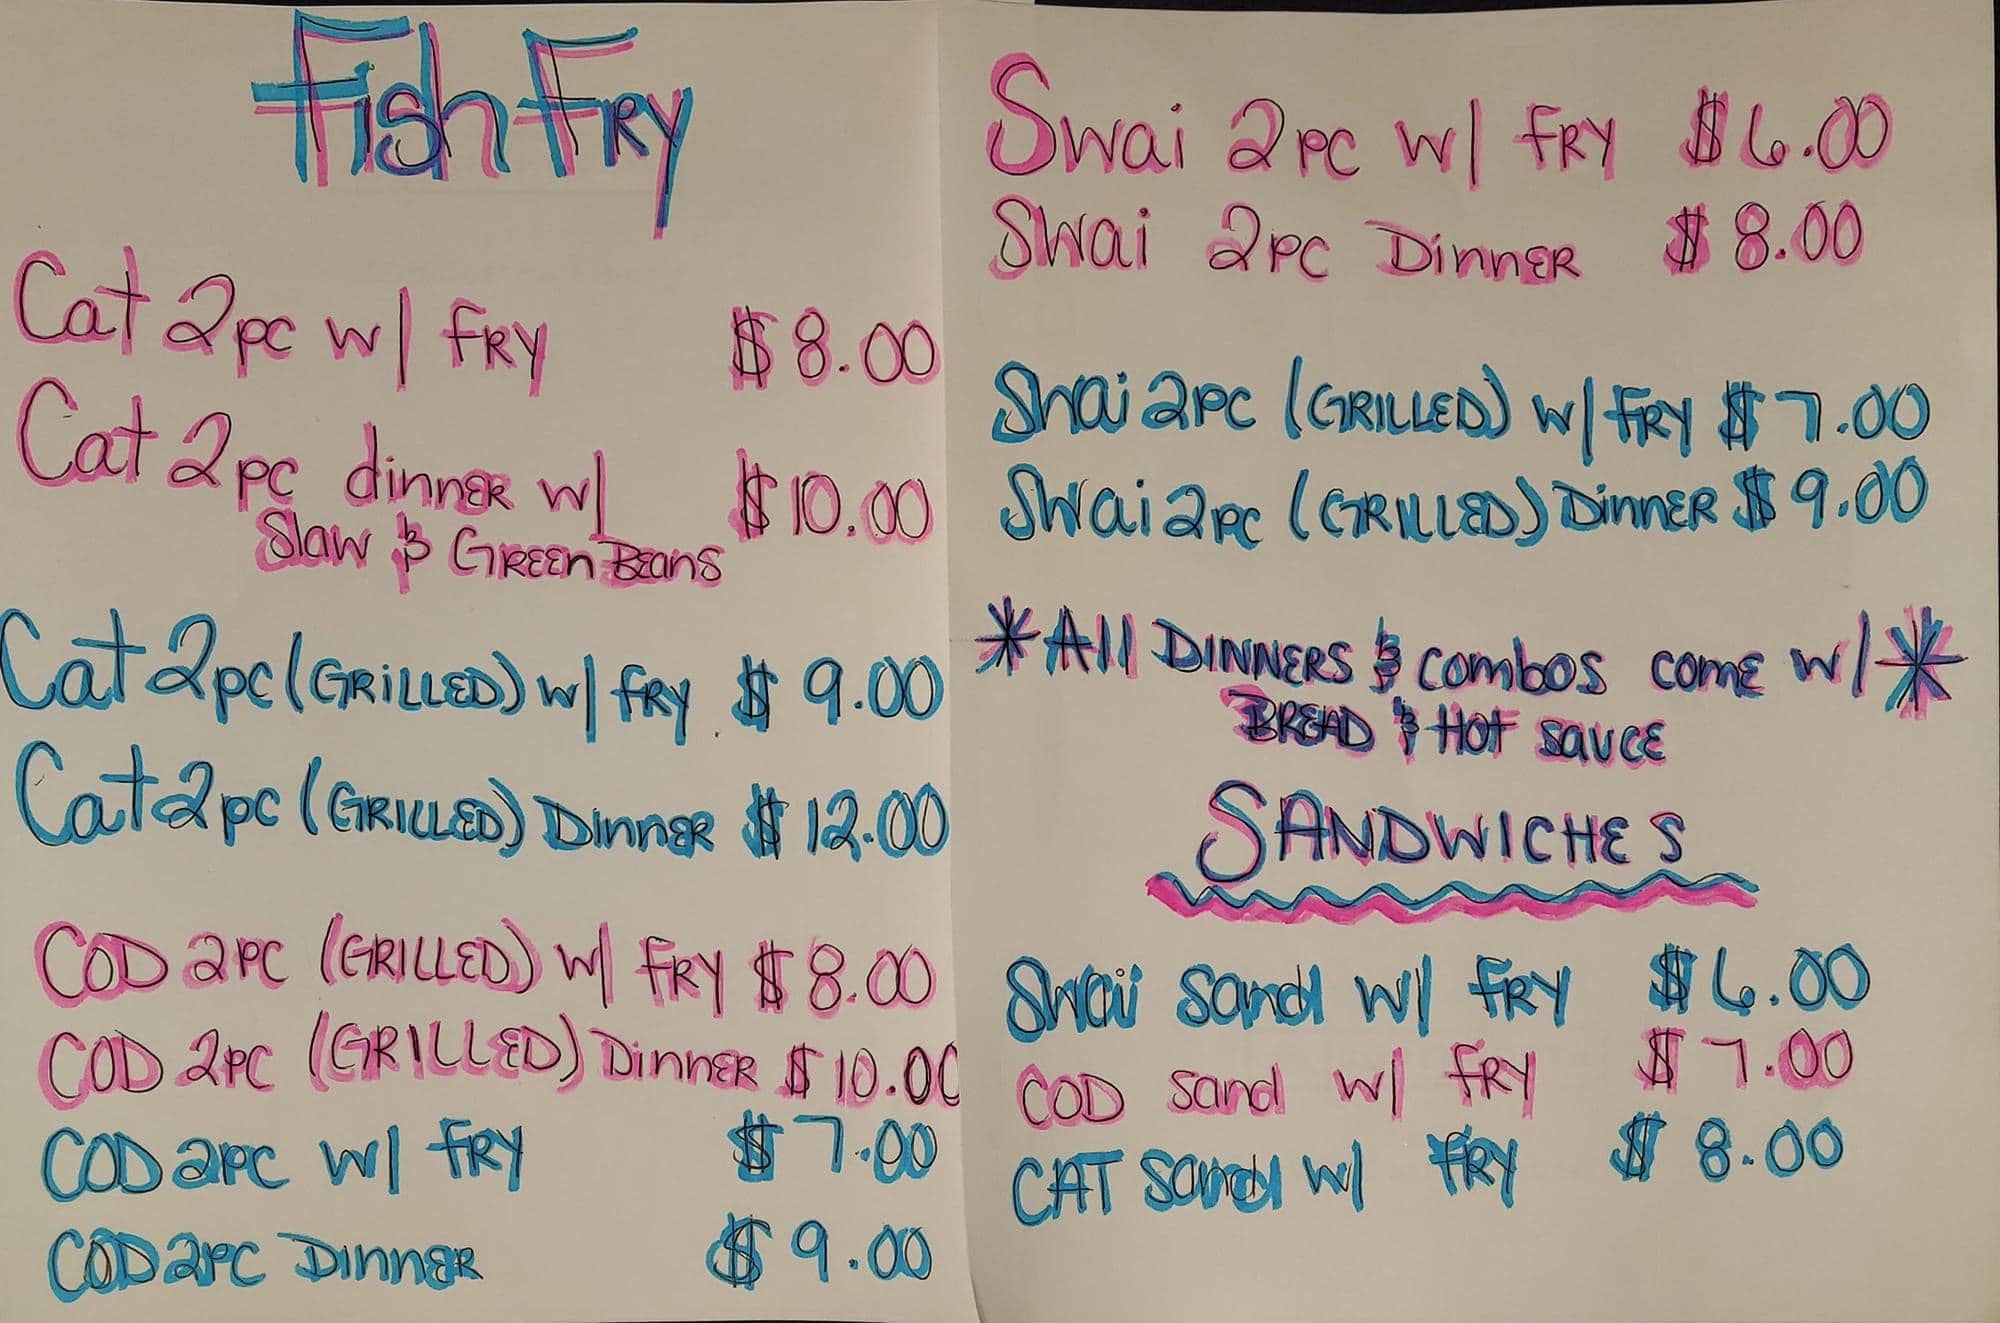 Fish Fry
Cat 2pc w/ fry $8.00
Cat 2pc dinner w/ $10.00
Slaw & Green Beans
Cat 2pc (GRILLED) w/ fry $9.00
Cat 2pc (GRILLED) Dinner $12.00
COD 2PC (GRILLED) w/ FRY $8.00
COD 2PC (GRILLED) Dinner $10.00
COD 2PC w/ FRY $7.00
COD 2PC Dinner $9.00
Swai 2pc w/ FRY $6.00
Swai 2pc Dinner $8.00
Swai 2pc (GRILLED) w/ FRY $7.00
Swai 2pc (GRILLED) Dinner $9.00
*All DINNERS & combos come w/*
BREAD & Hot sauce
SANDWICHES
Swai Sand w/ FRY $6.00
COD sand w/ FRY $7.00
CAT Sand w/ FRY $8.00